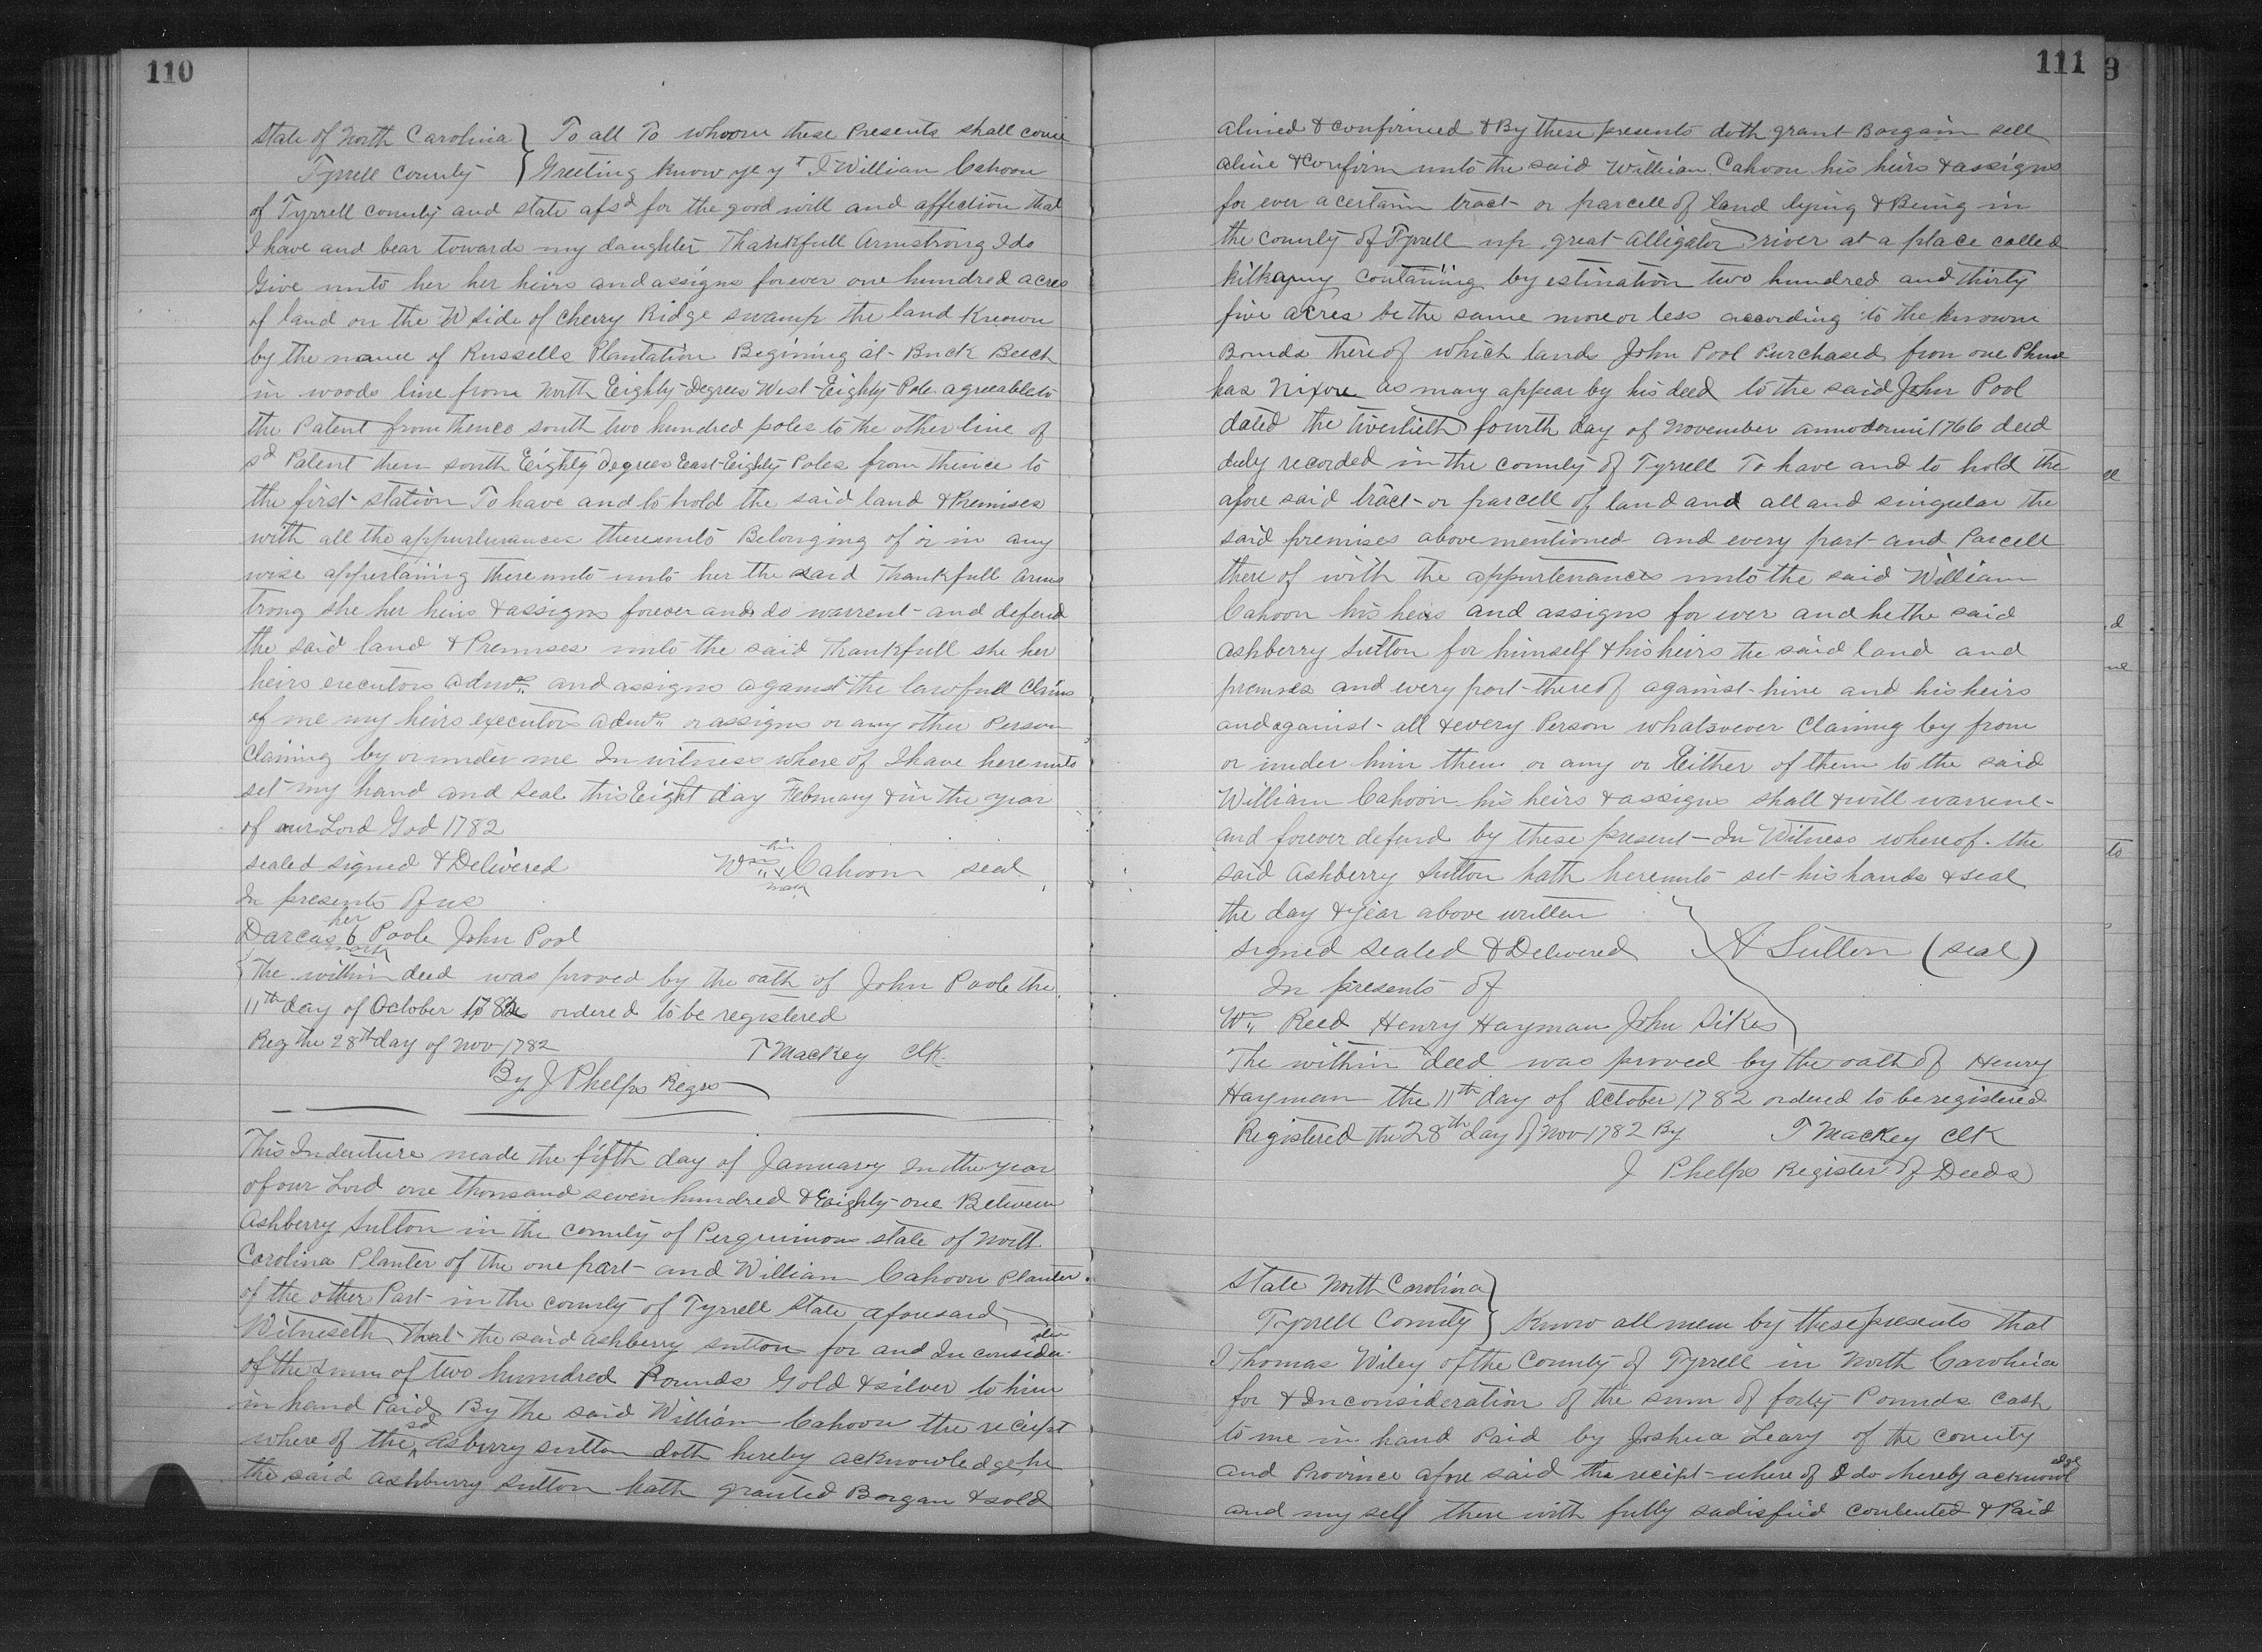 110
State of North Carolina } To all To whoom these Presents shall come
Tyrrell County } Greeting know ye yt I William Cahoon
of Tyrrell county and state afsd for the good will and affection that
I have and bear towards my daughter Thankfull Armstrong I do
Give unto her her heirs and assigns forever one hundred acres
of land on the W side of Cherry Ridge swamp the land Known
by the name of Russells Plantation Begining at Buck Beech
in woods line from North Eighty Degrees West Eighty Pole agreable to
the Patent from thence south two hundred poles to the other line of
sd Patent then south Eighty degrees East Eighty Poles from thence to
the first station To have and to hold the said land & Premises
with all the appurtunances thereunto Belonging of or in any
wise appertaining there unto unto her the said Thankfull Arms
trong she her heirs & assigns forever and do warrent and defend
the said land & Premises unto the said Thankfull she her
heirs executors admrs and assigns against the lawfull Claims
of me my heirs executors admrs or assigns or any other Person
Claiming by or under me In witness where of I have here unto
set my hand and Seal this Eight day February & in the year
of our Lord God 1782
sealed signed & Delivered Wm his x mark Cahoon seal
In presents of us
Darcas her 6 mark Poole John Pool
The within deed was proved by the oath of John Poole the
11th day of October 1782 ordered to be registered
Reg the 28th day of Nov 1782 T Mackey Clk
By J Phelps Regrs
This Indenture made the fifth day of January In the year
of our Lord one thousand seven hundred & Eaighty one Between
Ashberry Sutton in the county of Perquimons state of North
Carolina Planter of the one part and William Cahoon Planter
of the other Part in the county of Tyrrell State aforesard
Witneseth That the said Ashberry Sutton for and In consider
of the Sum of two hundred Pounds Gold & silver to him
in hand Paid By the said William Cahoon the reciept
where of the sd Asberry Sutton doth hereby acknowledge he
the said Ashburry Sutton hath granted Bargan & sold
111
alined & confirmed & By these presents doth grant Bargain sell
aline & confirm unto the said William Cahoon his heirs & assigns
for ever a certain tract or parcell of Land lying & Being in
the County of Tyrrell up great Alligator river at a place called
Containing by estination two hundred and thirty
five acres be the same more or less according to the known
Bounds there of which land John Pool Purchased from one Phine
has Nixon as mary appear by his deed to the said John Pool
dated the twentieth fourth day of November annodomini 1766 deed
duly recorded in the county of Tyrrell To have and to hold the
afore said tract or parcell of land and all and singular the
said premises above mentioned and every part and Parcell
there of with the appurtenances unto the said William
Cahoon his heirs and assigns for ever and he the said
Ashberry Sutton for himself & his heirs the said land and
premises and every part there of against hine and his heirs
and against all & every Person whatsoever Claimig by from
or under him them or any or Either of them to the said
William Cahoon his heirs & assigns shall & will warrent
and forever defend by these present In Witness whereof the
said Ashberry Sutton hath hereunto set his hands & seal
the day & year above written
signed sealed & Delivered A Sutton (seal)
In presents of
Wm Reed Henry Hayman John Sikes
The within deed was proved by the oath of Henry
Hayman the 11th day of October 1782 ordered to be registered
Registered the 28th day of Nov 1782 By T Mackey Clk
J Phelps Register of Deeds
State North Carolina }
Tyrrell County } Know all mem by these presents that
I Thomas Wiley of the County of Tyrrell in North Carolina
for & In consideration of the sum of forty Pounds Cash
to me in hand Paid by Joshua Leary of the County
and Province afore said the recipt where of I do hereby acknowledge
and my self there with fully sadisfied contented & Paid